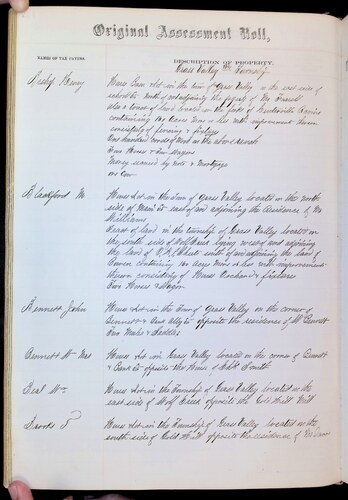 Original Assessment Roll,
NAMES OF TAX PAYERS.
DESCRIPTION OF PROPERTY.
Grass Valley Township
Henry
House Barn & Lot in the town of Grass Valley on the east side of
school St north of and adjoining the property of Mr
also a tract of land located in the
containing 160 Acres more or less with improvements thereon
consisting of fencing &
One hundred cords of Wood on the above Ranch
Four Horses & two Wagons
Money secured by note & Mortgage
one Cow
Blackford M
House & Lot in the Town of Grass Valley located on the north
side of Main St east of and adjoining the residence of Mr
Williams
Tract of land in the township of Grass Valley located on
the south side of Wolf Creek lying west of and adjoining
the land of north of and adjoining the land of
containing 160 Acres more or less with improvements
thereon consisting of House Orchard & fixtures
Two Horses & Wagon
Bennett John
House & Lot in the Town of Grass Valley on the corner of
Bennett & opposite the residence of M Bennett
Two Mules & Saddles
Bennett Wm Mrs
House & Lot in Grass Valley located on the corner of Bennett
& opposite the House of
Beal Wm
House & Lot in the Township of Grass Valley located on the
east side of Wolf Creek opposite the Gold Hill Mill
T
House & Lot in the Township of Grass Valley located on the
south side of Gold Hill opposite the residence of